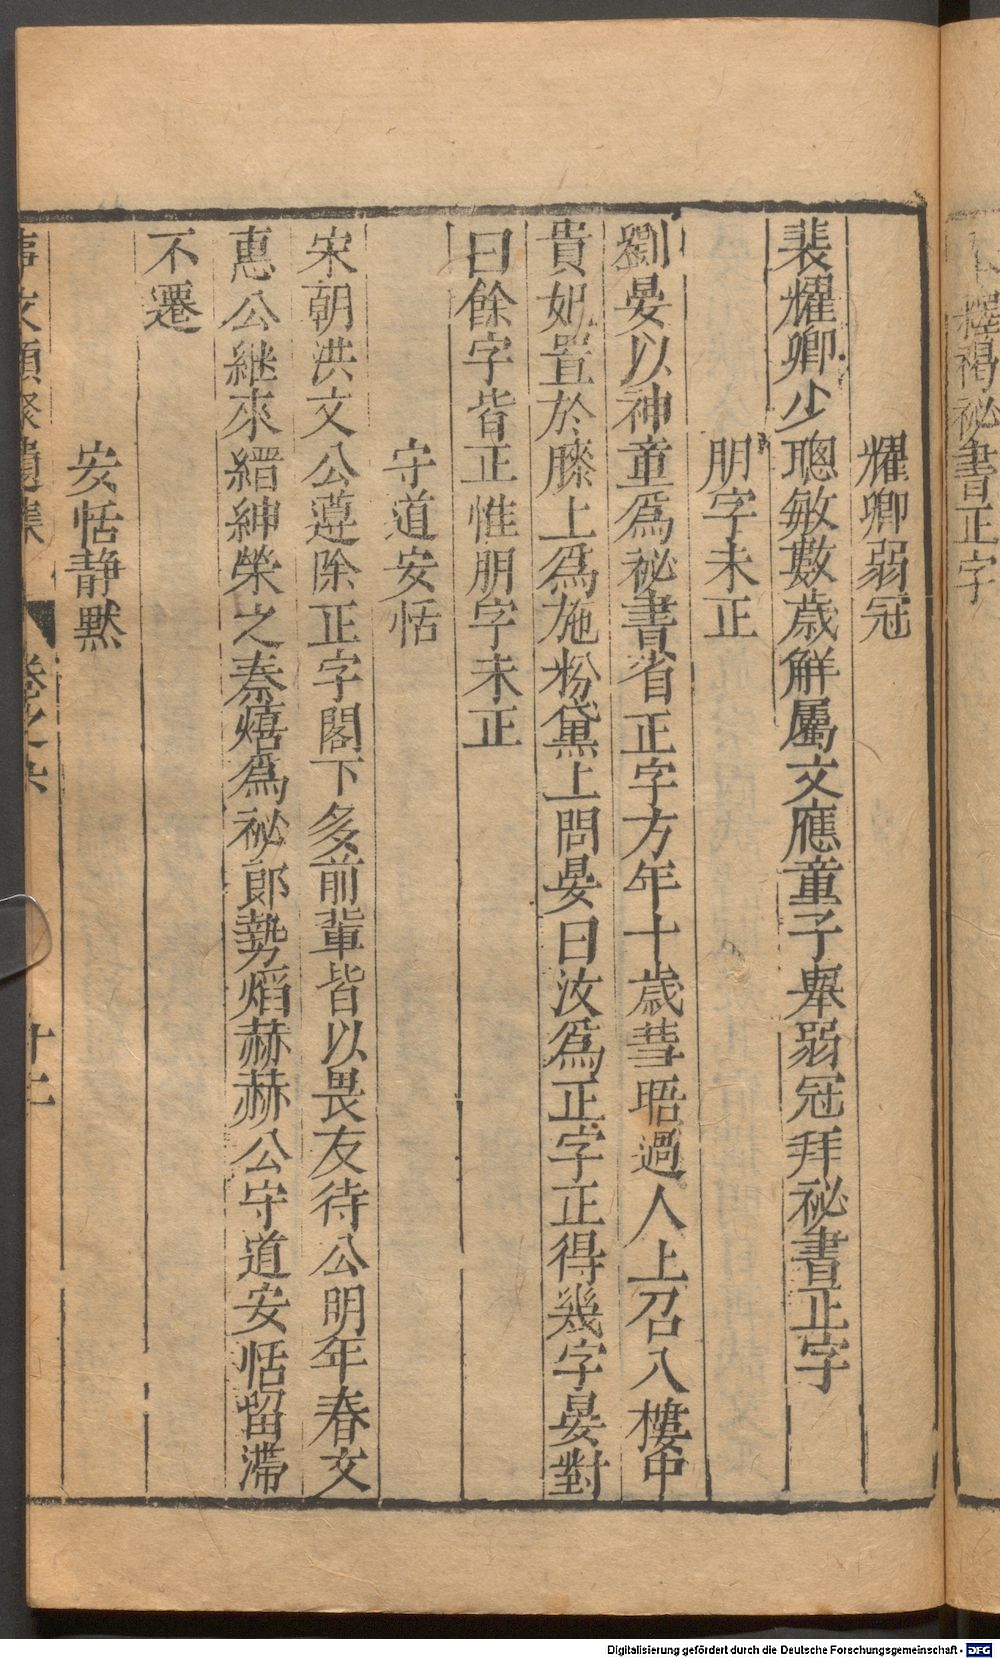 釋褐祕書正字
耀卿弱冠
裴耀卿少聰敏數歲解屬文應童子舉弱冠拜祕書正字
朋字未正
劉晏以神童爲祕書省正字方年十歲彗晤過人上召入樓中
貴妃置於膝上爲施粉黛上問晏曰汝爲正字正得幾字晏對
曰餘字皆正惟朋字未正
守道安恬
宋朝洪文公遵除正字閣下多前輩皆以畏友待公明年春文
惠公継來縉紳榮之秦熺爲祕郎勢熖赫赫公守道安恬留滯
不遷
安恬靜默
事文類聚遺集 卷之 十二
Digitalisierung gefördert durch die Deutsche Forschungsgemeinschaft - DFG